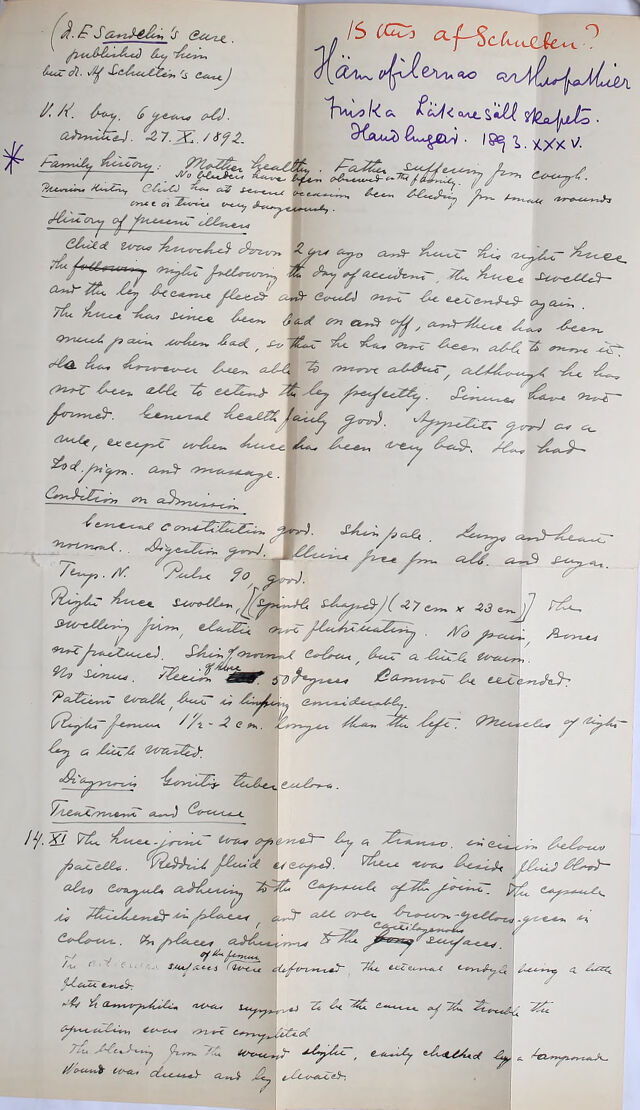 (D. E Sandelin's case.
published by him
but dr. Af Schulten's case)
Is this af Schulten?
Hämofilernas arthropathier
Finska Läkaresällskapets.
Handlingar. 1893. XXXV.
V. K. boy. 6 years old.
admitted. 27. X. 1892.
Family history: Mother healthy. Father suffering from cough.
No bleeders have been observed in the family.
Previous History Child has at several occasions been bleeding from small wounds
once or twice very dangerously.
History of present illness
Child was knocked down 2 yrs ago and hurt his right knee
The following night following the day of accident, the knee swelled
and the leg became flexed and could not be extended again.
The knee has since been bad on and off, and there has been
much pain when bad, so that he has not been able to move it.
He has however been able to move about, although he has
not been able to extend the leg perfectly. Sinuses have not
formed. General health fairly good. Appetite good as a
rule, except when knee has been very bad. Has had
Iod. pigm. and massage.
Condition on admission
General constitution good. Skin pale. Lungs and heart
normal. Digestion good. Urine free from alb. and sugar.
Temp. N. Pulse 90, good.
Right knee swollen, [(spindle shaped) (27 cm x 23 cm)] The
swelling firm, elastic not fluktuating. No pain, Bones
not fractured. Skin of normal colour, but a little warm.
No sinus. Flexion of knee 50 degrees Cannot be extended.
Patient walk, but is limping considerably.
Right femur 1½ - 2 cm. longer than the left. Muscles of right
leg a little wasted.
Diagnosis Gonitis tuberculosa.
Treatment and Course
14. XI The knee-joint was opened by a transv. incision below
patella. Reddish fluid escaped. There was beside fluid blood
also coagula adhering to the capsule of the joint. The capsule
is thickened in places, and all over brown-yellow-green in
colour. In places adhesions to the cartilagenous surfaces.
The surfaces of the femur were deformed, the external condyle being a little
flattened.
As hämophilia was supposed to be the cause of the trouble the
operation was not completed
The bleeding from the wound slight, easily checked by a tamponade
Wound was dressed and leg elevated.